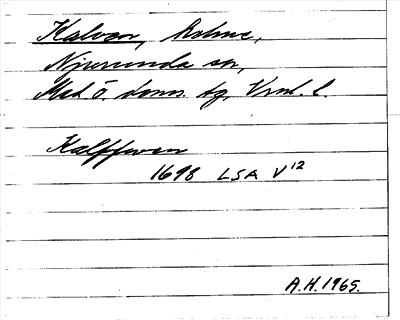 Kalven, Holme,
Njurunda sn,
Med ö. doms. tg, Vrnl. l.
Kalffwen
1698 LSA V12
A.H. 1965.